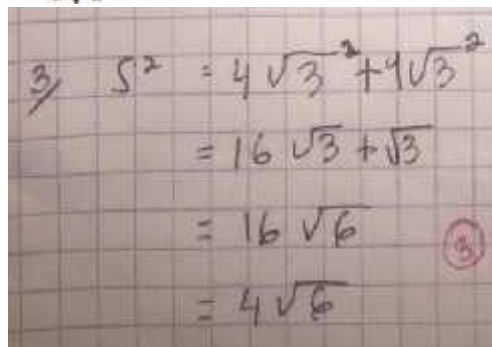 3/ S² = 4√3² + 4√3²
= 16√3 + √3
= 16√6
3
= 4√6